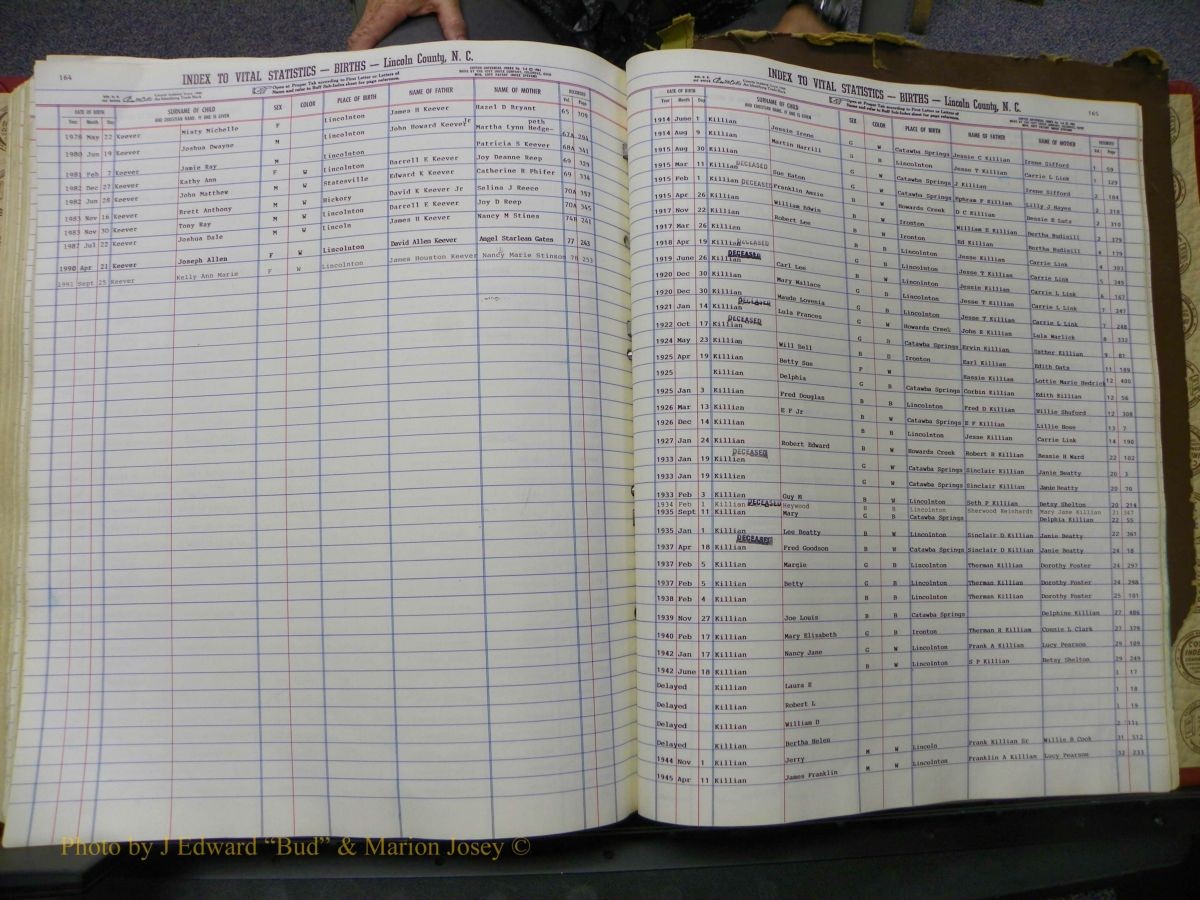 164
INDEX TO VITAL STATISTICS — BIRTHS — Lincoln County, N. C.
Open at Proper Tab according to First Letter or Letters of
Name and refer to Buff Sub-Index sheet for page reference.
DATE OF BIRTH SURNAME OF CHILD SEX COLOR PLACE OF BIRTH NAME OF FATHER NAME OF MOTHER RECORDED
Year Month Day AND CHRISTIAN NAME, IF ONE IS GIVEN Vol. Page
1978 May 22 Keever Misty Michelle F Lincolnton James H Keever Hazel D Bryant 65 309
1980 Jun 19 Keever Joshua Dwayne M Lincolnton John Howard Keever Jr Martha Lynn Hedge-peth 67A 294
1981 Feb 7 Keever Jamie Ray M Lincolnton Patricia S Keever 68A 341
1982 Dec 27 Keever Kathy Ann F W Statesville Darrell E Keever Joy Deanne Reep 69 329
1982 Jun 28 Keever John Matthew M W Hickory Edward K Keever Catherine R Phifer 69 334
1983 Nov 16 Keever Brett Anthony M W Lincolnton David K Keever Jr Selina J Reece 70A 157
1983 Nov 30 Keever Tony Ray M W Lincoln Darrell E Keever Joy D Reep 70A 345
1987 Jul 22 Keever Joshua Dale James H Keever Nancy M Stines 74B 241
1990 Apr 21 Keever Joseph Allen F W Lincolnton David Allen Keever Angel Starlean Gates 77 243
1991 Sept 25 Keever Kelly Ann Marie F W Lincolnton James Houston Keever Nancy Marie Stinson 78 253
165
INDEX TO VITAL STATISTICS — BIRTHS — Lincoln County, N. C.
Open at Proper Tab according to First Letter or Letters of
Name and refer to Buff Sub-Index sheet for page reference.
DATE OF BIRTH SURNAME OF CHILD SEX COLOR PLACE OF BIRTH NAME OF FATHER NAME OF MOTHER RECORDED
Year Month Day AND CHRISTIAN NAME, IF ONE IS GIVEN Vol. Page
1914 June 1 Killian Jessie Irene G W Catawba Springs Jessie C Killian Irene Gifford 1 59
1914 Aug 9 Killian Martin Harrill G B Lincolnton Jesse T Killian Carrie L Link 1 129
1915 Aug 30 Killian G W Catawba Springs J Killian Irene Gifford 2 184
1915 Mar 11 Killian DECEASED Sue Eaton G W Howards Creek Ephram F Killian Lilly J Hayes 2 318
1915 Feb 1 Killian DECEASED Franklin Amzie B W Ironton D C Killian Bessie E Lutz 2 310
1915 Apr 26 Killian William Edwin B W Ironton William E Killian Bertha Rudisill 2 379
1917 Nov 22 Killian Robert Lee B B Lincolnton Ed Killian Bertha Rudisill 4 179
1917 Mar 26 Killian Jesse Killian Carrie Link 4 303
1918 Apr 19 Killian DECEASED G B Lincolnton Jesse T Killian Carrie Link 5 349
1919 June 26 Killian DECEASED Carl Lee B W Lincolnton Jessie Killian Carrie L Link 6 167
1920 Dec 30 Killian Mary Wallace G B Lincolnton Jesse T Killian Carrie L Link 7 247
1920 Dec 30 Killian Maude Lovenia G B Lincolnton Jesse T Killian Carrie L Link 7 248
1921 Jan 14 Killian DECEASED Lula Frances G W Howards Creek John R Killian Lula Warlick 8 332
1922 Oct 17 Killian DECEASED G B Catawba Springs Ervin Killian Esther Killian 9 81
1924 May 23 Killian Will Bell B B Ironton Earl Killian Edith Oats 11 189
1925 Apr 19 Killian Betty Sue F W Hassie Killian Lottie Marie Hedrick 12 400
1925 Killian Delphia G B Catawba Springs Corbin Killian Edith Killian 12 56
1925 Jan 3 Killian Fred Douglas B B Lincolnton Fred D Killian Willie Shuford 12 308
1926 Mar 13 Killian E F Jr B W Catawba Springs E F Killian Lillie Boue 13 7
1926 Dec 14 Killian B B Lincolnton Jesse Killian Carrie Link 14 190
1927 Jan 24 Killian Robert Edward B W Howards Creek Robert R Killian Bessie H Ward 22 102
1933 Jan 19 Killian DECEASED G W Catawba Springs Sinclair Killian Janie Beatty 20 3
1933 Jan 19 Killian G W Catawba Springs Sinclair Killian Janie Beatty 20 70
1933 Feb 3 Killian Guy M B W Lincolnton Seth P Killian Betsy Shelton 20 214
1934 Feb 1 Killian DECEASED Heywood B B Lincolnton Sherwood Reinhardt Mary Jane Killian 21 347
1935 Sept 11 Killian Mary G B Catawba Springs Delphia Killian 22 55
1935 Jan 1 Killian Lee Beatty B W Lincolnton Sinclair D Killian Janie Beatty 22 361
1937 Apr 18 Killian DECEASED Fred Goodson B W Catawba Springs Sinclair D Killian Janie Beatty 24 18
1937 Feb 5 Killian Margie G B Lincolnton Therman Killian Dorothy Foster 24 297
1937 Feb 5 Killian Betty G B Lincolnton Therman Killian Dorothy Foster 24 298
1938 Feb 4 Killian B B Lincolnton Therman Killian Dorothy Foster 25 181
1939 Nov 27 Killian Joe Louis B B Catawba Springs Delphine Killian 27 486
1940 Feb 17 Killian Mary Elizabeth G B Ironton Therman R Killiam Connie L Clark 27 379
1942 Jan 17 Killian Nancy Jane G W Lincolnton Frank A Killian Lucy Pearson 29 109
1942 June 18 Killian B W Lincolnton S P Killian Betsy Shelton 29 249
Delayed Killian Laura E 1 17
Delayed Killian Robert L 1 18
Delayed Killian William D 1 19
Delayed Killian Bertha Helen 2 131
1944 Nov 1 Killian Jerry M W Lincoln Frank Killian Sr Willie B Cook 31 512
1945 Apr 11 Killian James Franklin M W Lincolnton Franklin A Killian Lucy Pearson 32 233
Photo by J Edward "Bud" & Marion Josey ©